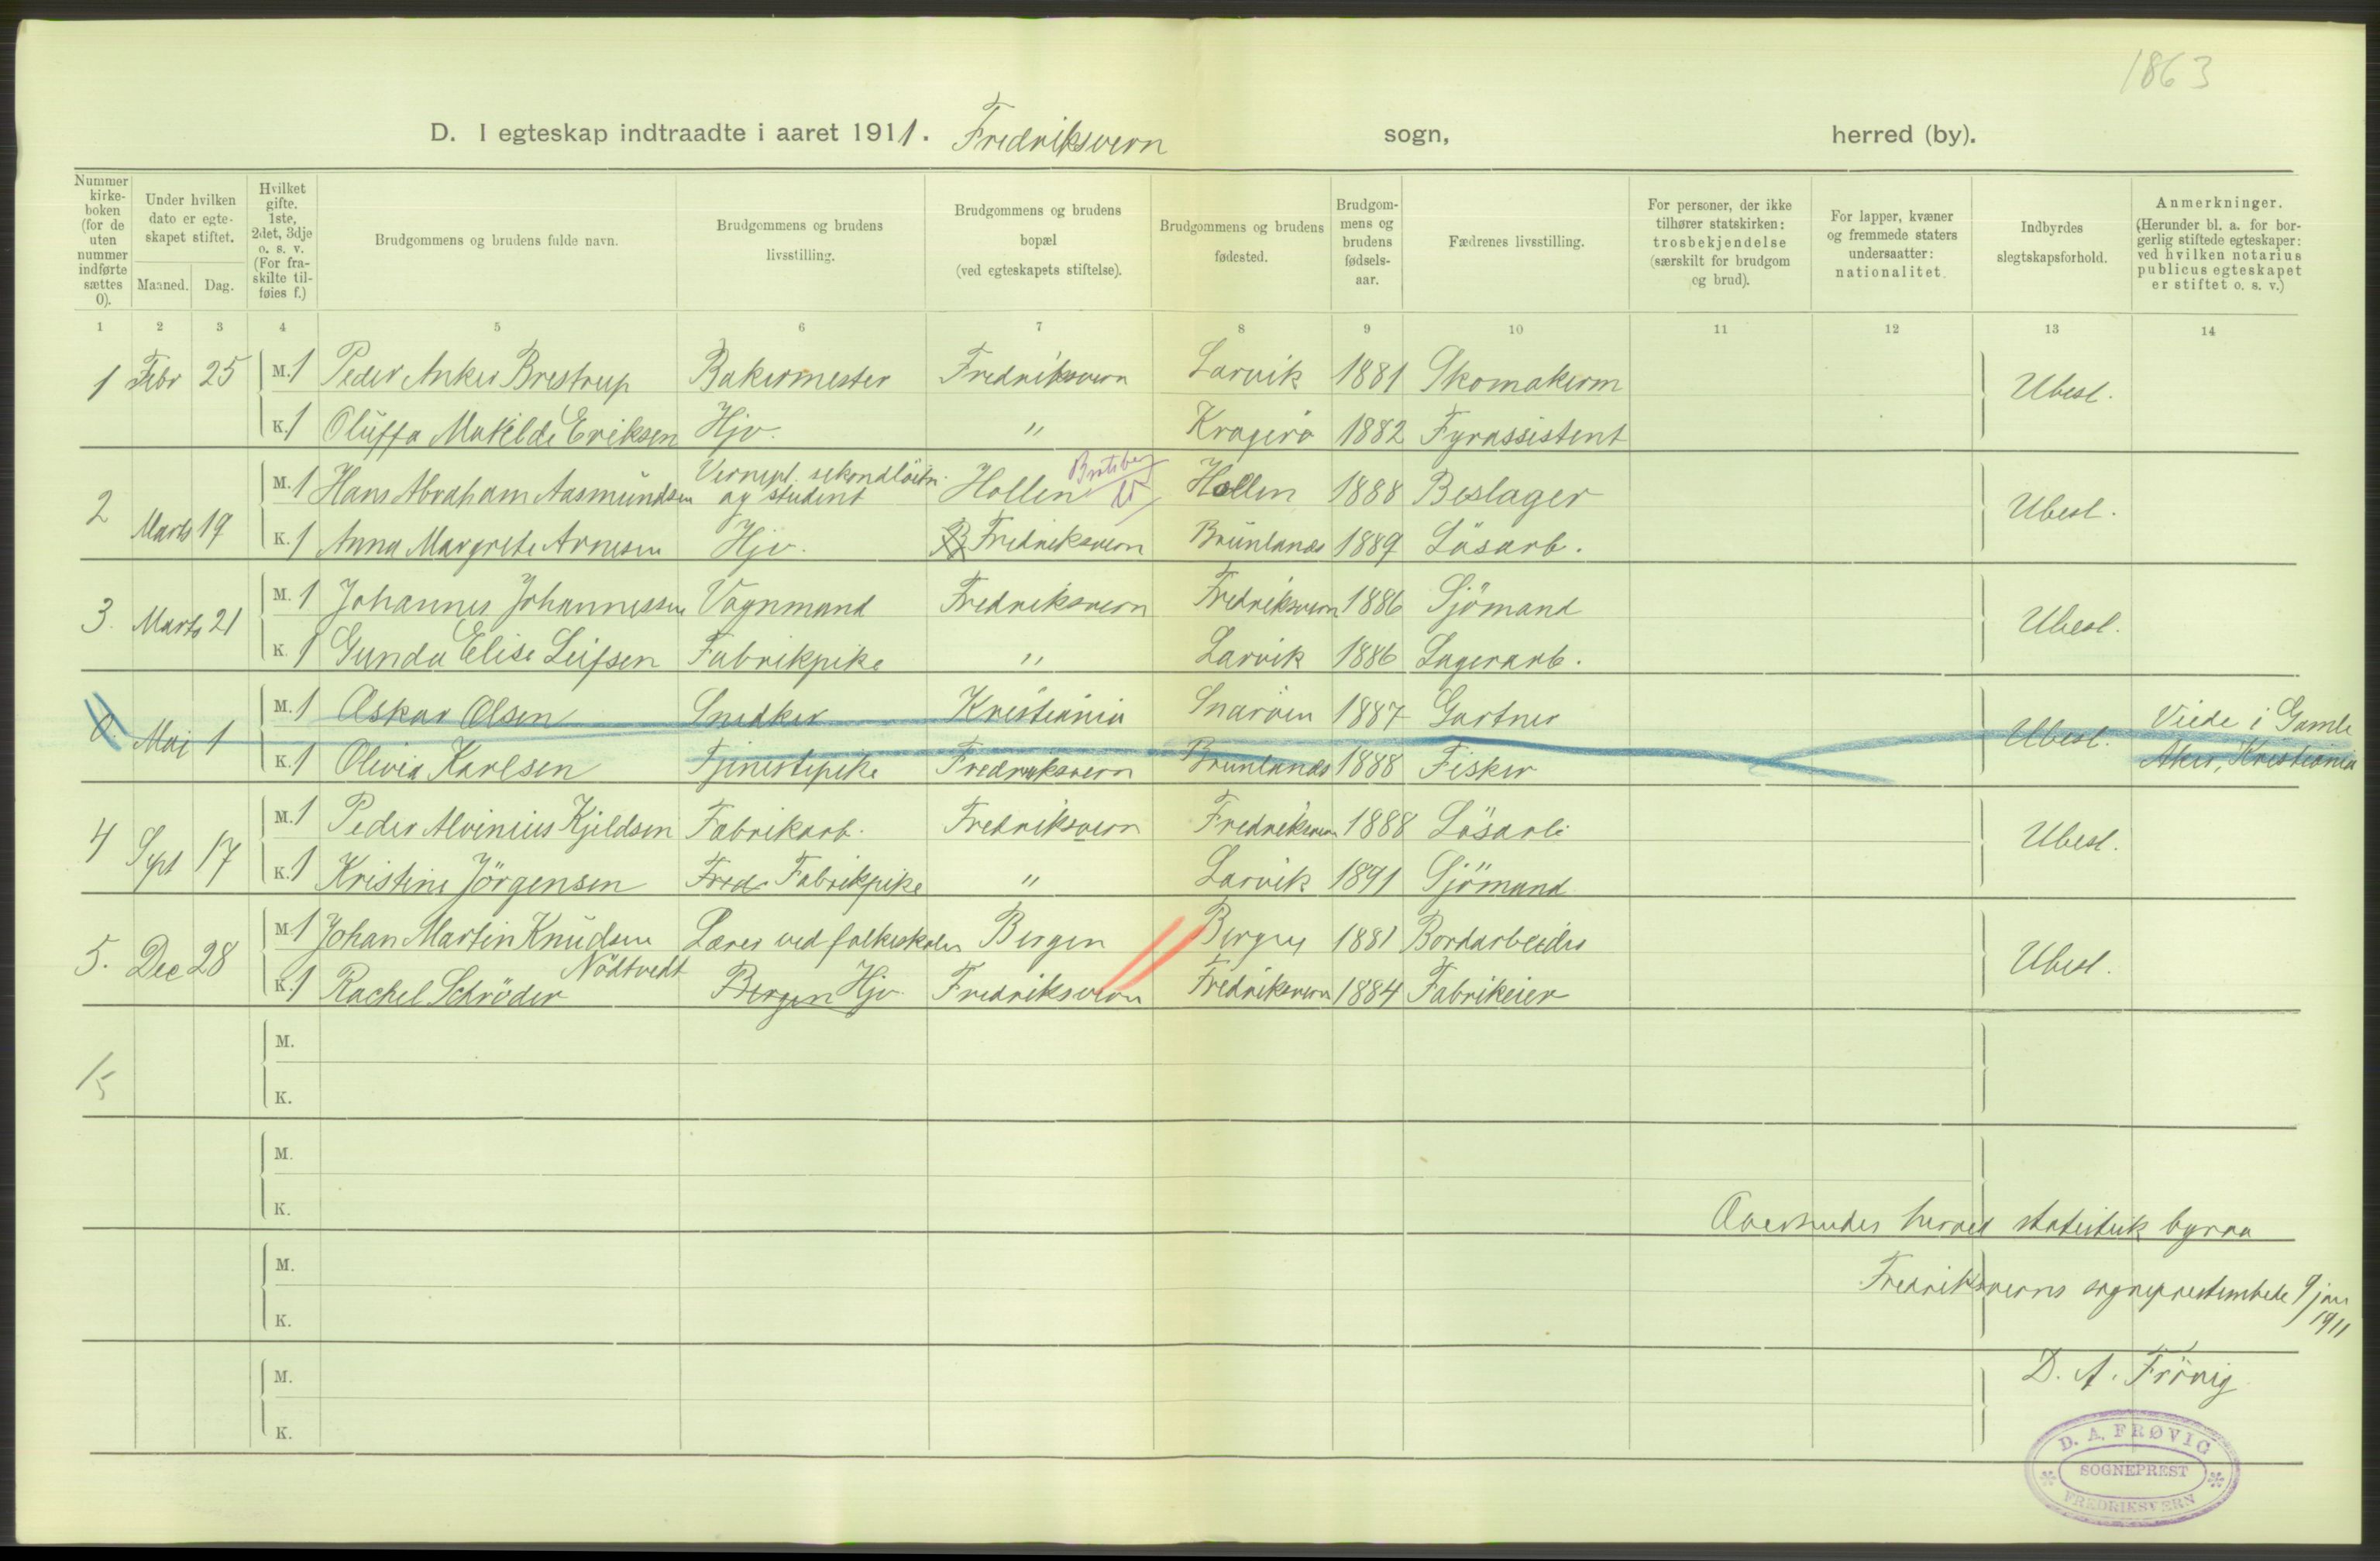 1863
D. I egteskap indtraadte i aaret 1911. Fredriksvern sogn, herred (by).
Nummer kirke-boken (for de uten nummer indførte sættes 0).
Under hvilken dato er egte-skapet stiftet.
Maaned. Dag.
Hvilket gifte. 1ste, 2det, 3dje o. s. v. (For fra-skilte til-føies f.)
Brudgommens og brudens fulde navn.
Brudgommens og brudens livsstilling.
Brudgommens og brudens bopæl (ved egteskapets stiftelse).
Brudgommens og brudens fødested.
Brudgom-mens og brudens fødsels-aar.
Fædrenes livsstilling.
For personer, der ikke tilhører statskirken: trosbekjendelse (særskilt for brudgom og brud).
For lapper, kvæner og fremmede staters undersaatter: nationalitet.
Indbyrdes slegtskapsforhold.
Anmerkninger. (Herunder bl. a. for bor-gerlig stiftede egteskaper: ved hvilken notarius publicus egteskapet er stiftet o. s. v.)
1 2 3 4 5 6 7 8 9 10 11 12 13 14
1 Febr 25 M. 1 Peder Anker Brestrup Bakermester Fredriksvern Larvik 1881 Skomakerm Ubesl.
K. 1 Oluffa Matilde Eriksen Hjv. " Kragerö 1882 Fyrassistent
2 Marts 19 M. 1 Hans Abraham Aasmundsen Vernepl. sekondlöitn. og student Hollen Bratsberg Hollen 1888 Beslager Ubesl.
K. 1 Anna Margrete Arnesen Hjv. B Fredriksvern Brunlanes 1889 Lösarb.
3. Marts 21 M. 1 Johannes Johannessen Vognmand Fredriksvern Fredriksvern 1886 Sjömand Ubesl.
K. 1 Gunda Elise Leifsen Fabrikpike " Larvik 1886 Lagerarb.
0. Mai 1 M. 1 Oskar Olsen Snedker Kristiania Snaröen 1887 Gartner Ubesl. Viede i Gamle
K. 1 Olivia Karlsen Tjenestepike Fredriksvern Brunlanes 1888 Fisker Aker, Kristiania
4 Sept 17 M. 1 Peder Alvinius Kjeldsen Fabrikarb. Fredriksvern Fredriksvern 1888 Lösarb. Ubesl.
K. 1 Kristine Jörgensen Fred Fabrikpike " Larvik 1891 Sjömand
5. Dec 28 M. 1 Johan Martin Knudsen Lærer ved folkeskolen Bergen Bergen 1881 Bordarbeider Ubesl.
K. 1 Rachel Schröder Nödtvedt Bergen Hjv. Fredriksvern Fredriksvern 1884 Fabrikeier
M.
15
K.
M.
K.
Oversendes herved statistisk byraa
M.
Fredriksverns sogneprestembede 9 jan 1911
K.
M.
D. A. Frövig
K.
D. A. FRØVIG
SOGNEPREST
FREDRIKSVERN